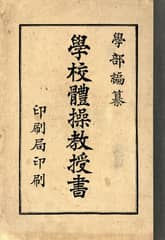 學部編纂
學校體操教授書
印刷局印刷